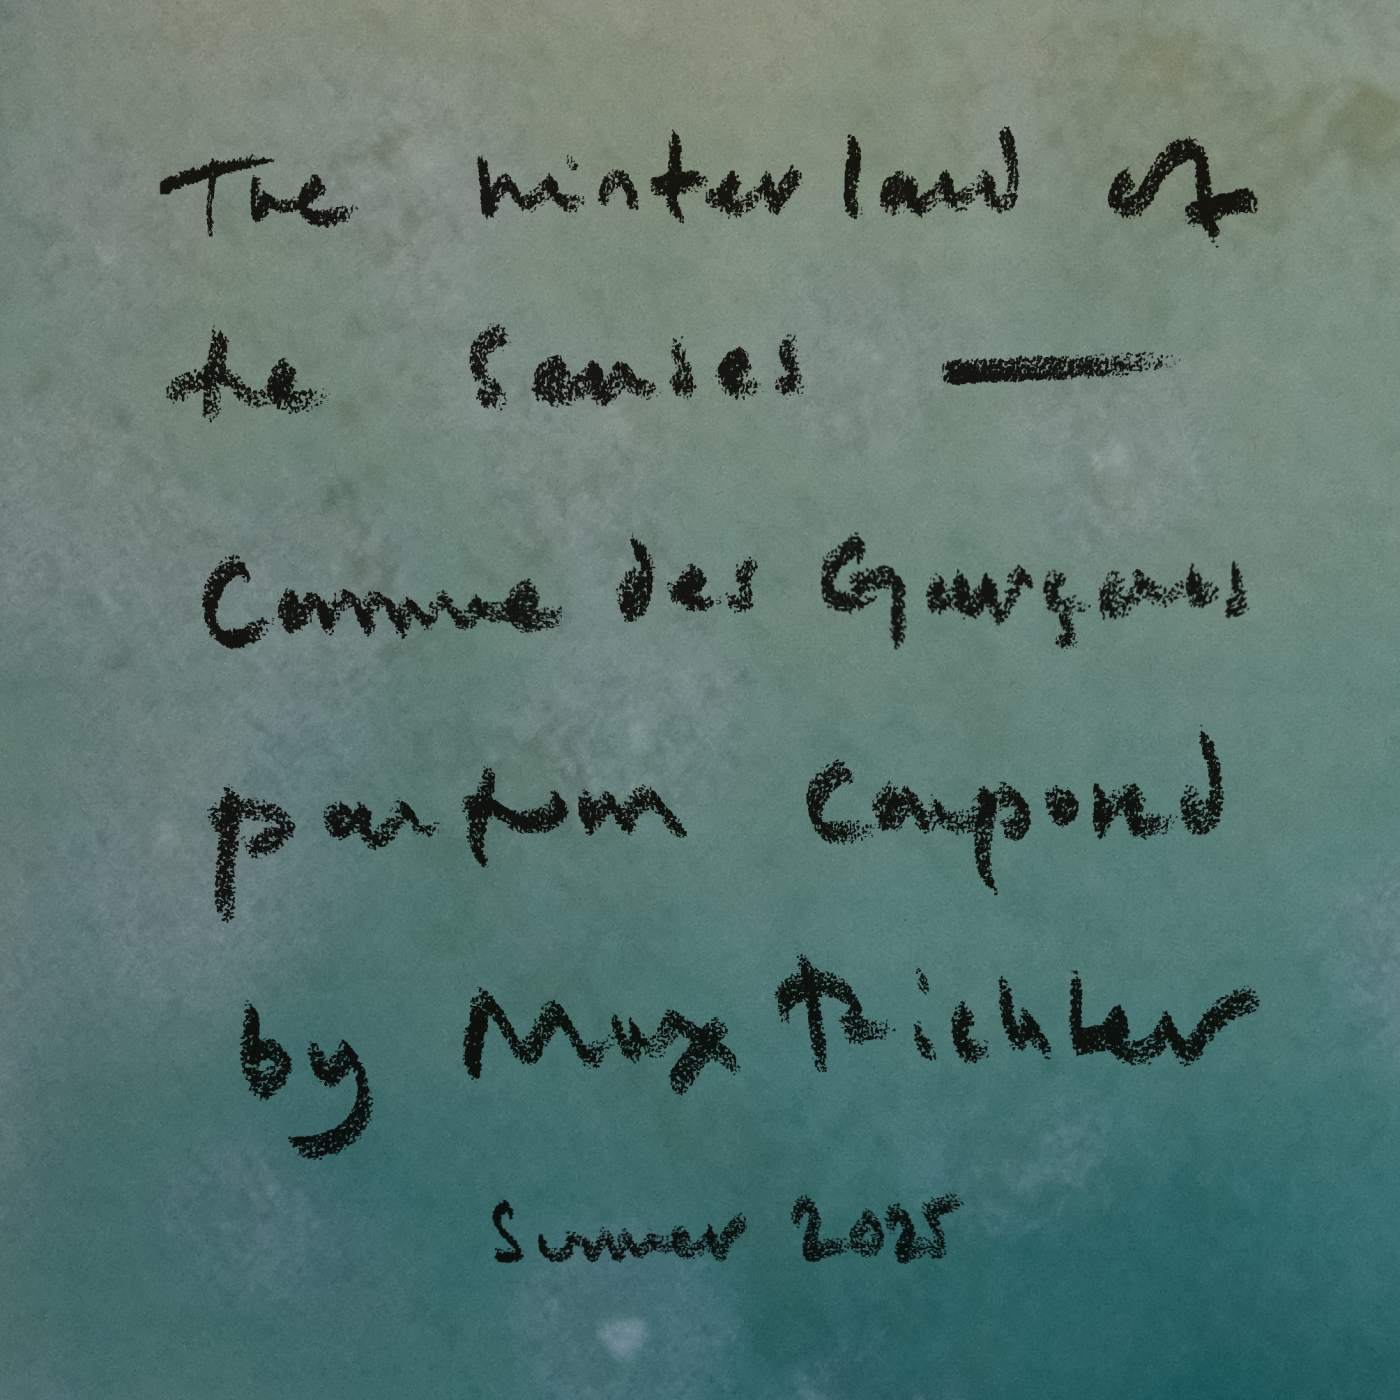 The hinterland of
the senses —
Comme des Garçons
parfum Carpond
by Max Richter
Summer 2025